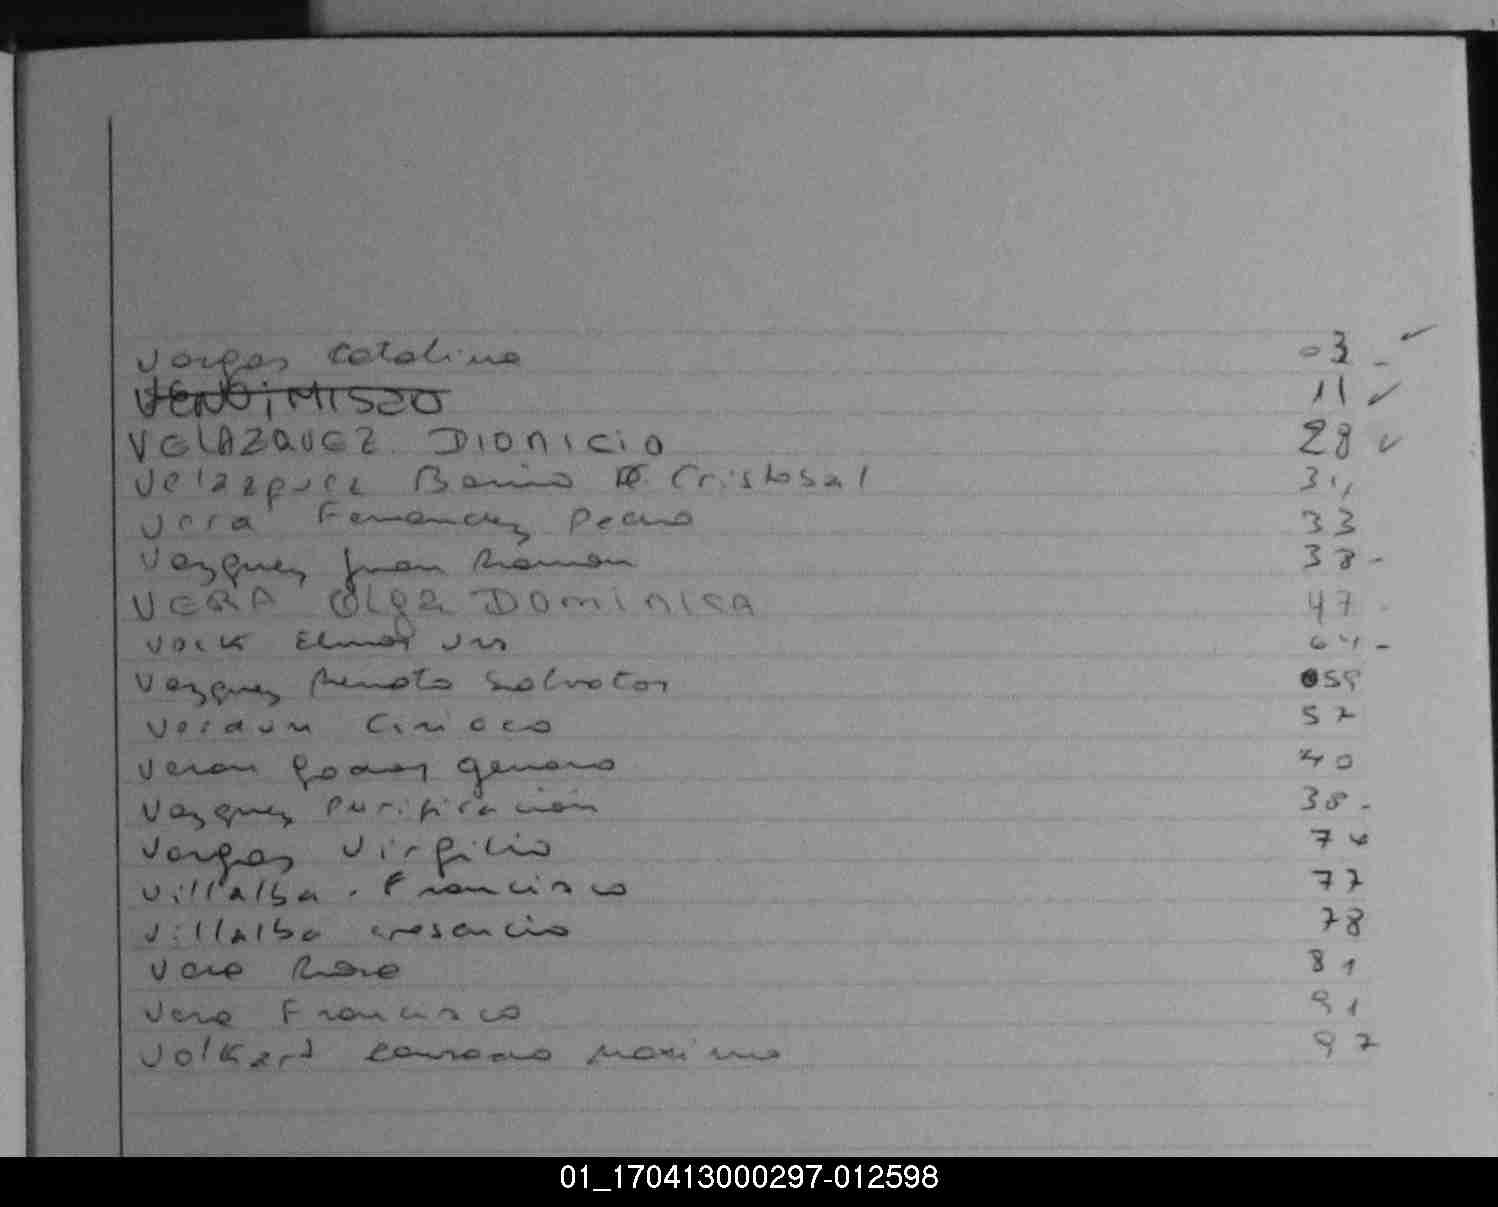 Vargas Catalina 03 - ✓
11 ✓
VELAZQUEZ DIONICIO 28 ✓
Velazquez de Cristobal
Vera Fernandez Pedro 33
Vazquez Juan Ramon 38 -
VERA Olga Dominica 47 -
64 -
Vazquez Renato Salvator 59
Verdun Ciriaco 57
Veron Godoy Genaro 40
Vazquez Purificacion 38 -
Vargas Virgilio 74
Villalba Francisco 77
Villalba Cresencio 78
Vera Rosa 81
Vera Francisco 91
Volkart Maximo 97
01_170413000297-012598